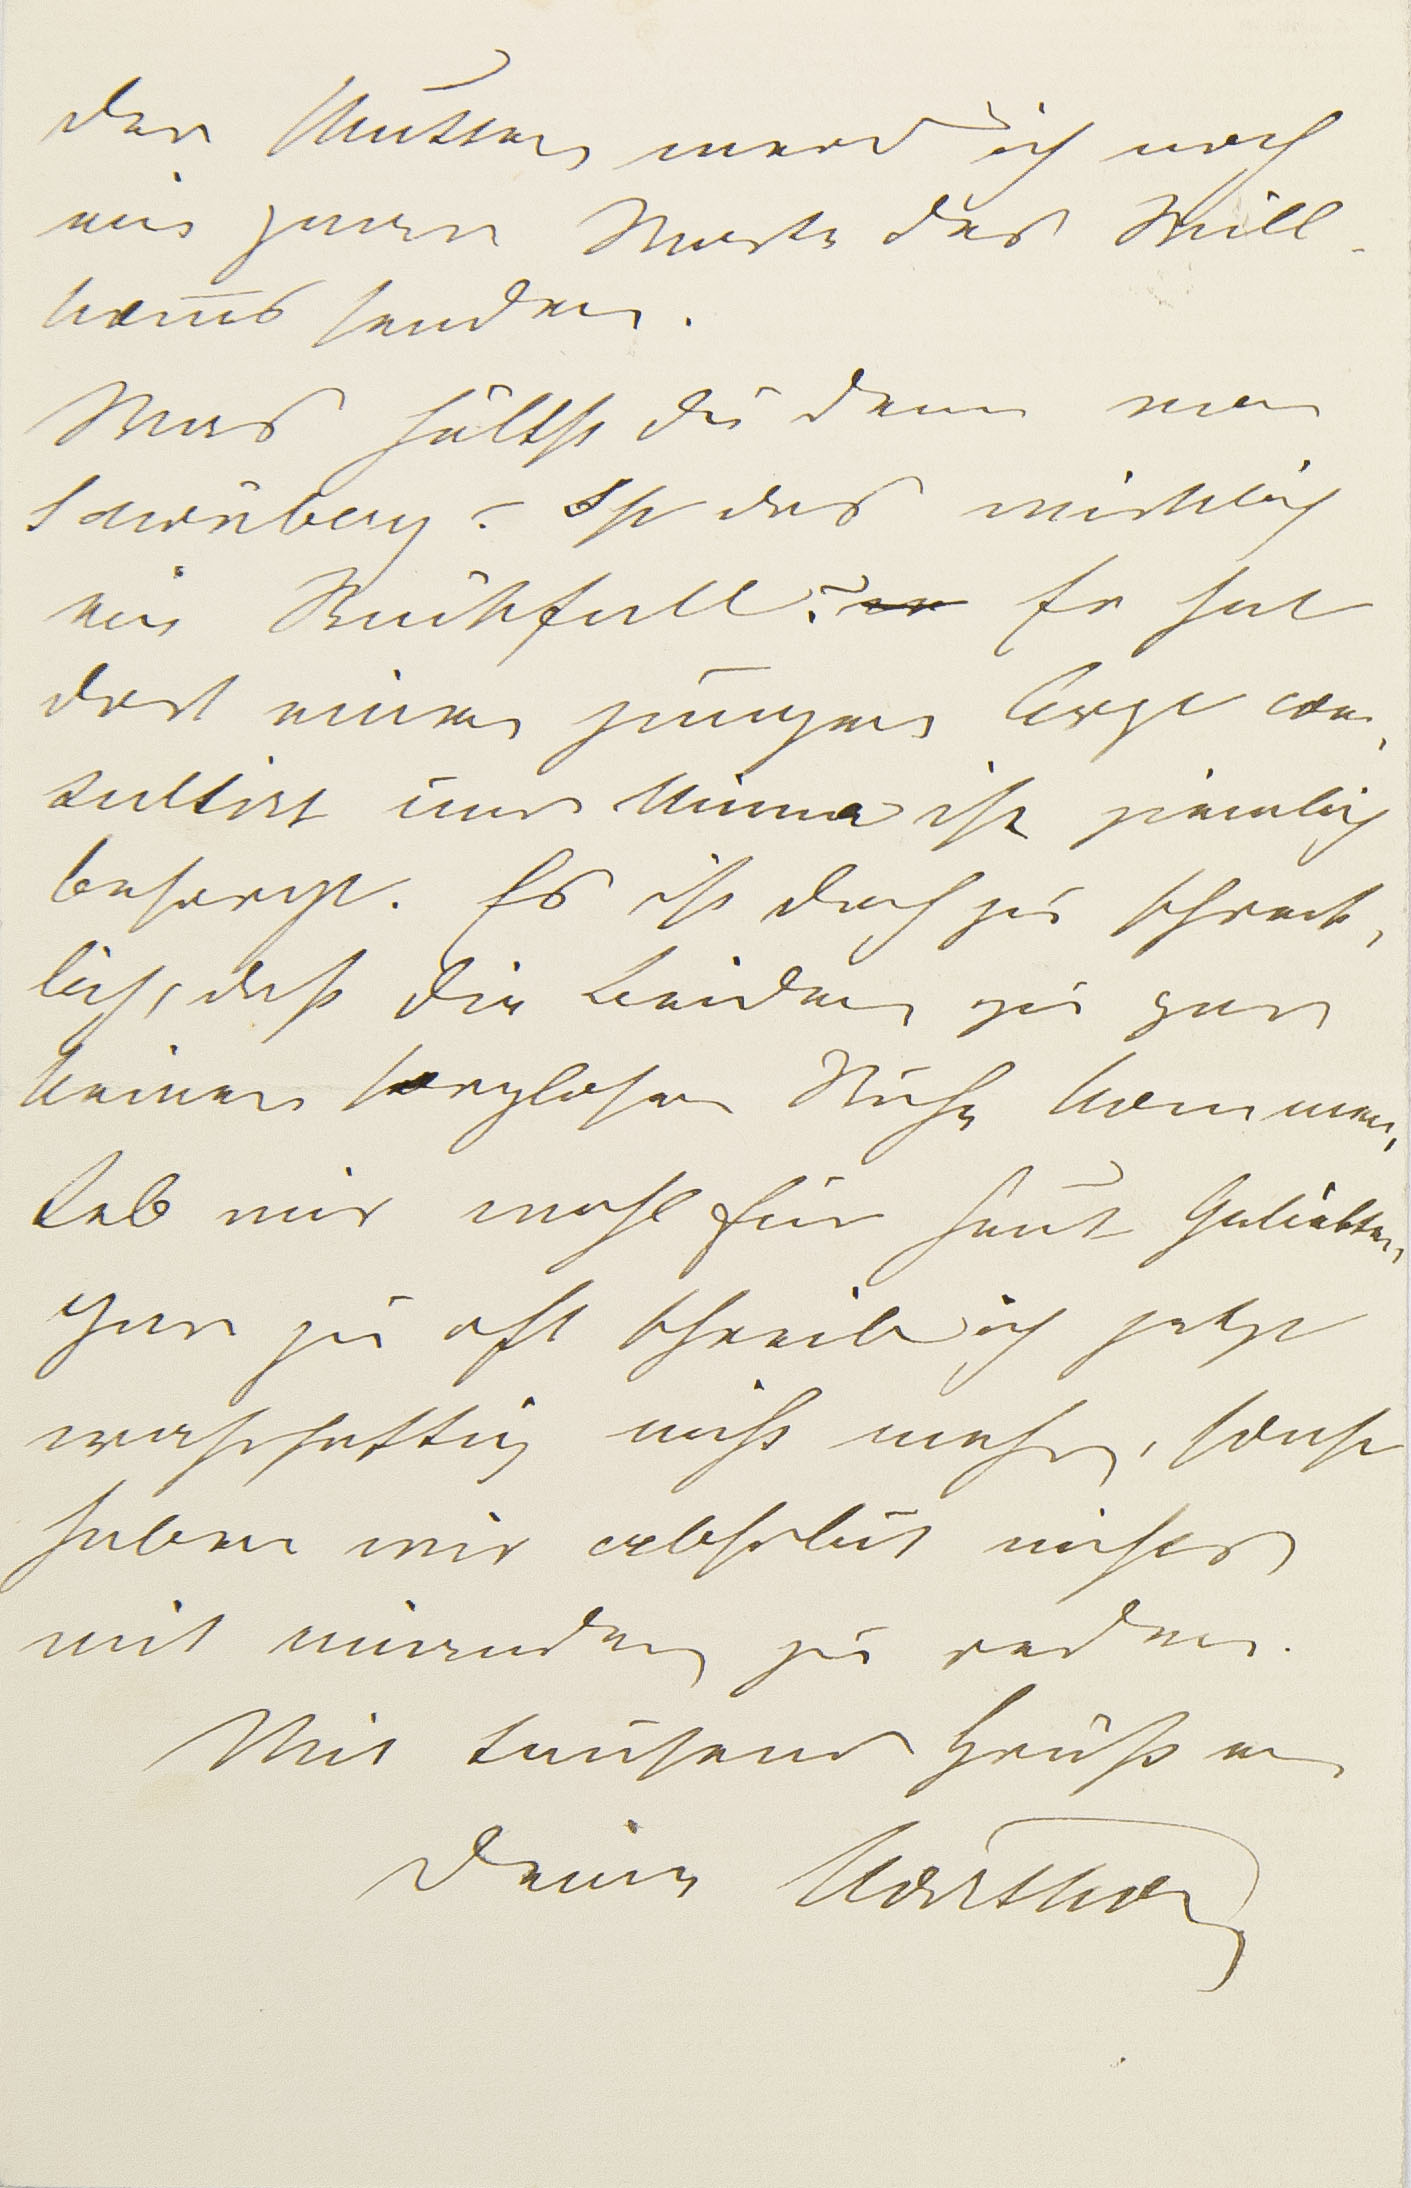 der Mutter werd ich noch
ein paar Worte des Will-
kom̅s senden.
Was hältst du denn von
Schönberg? Ist das wirklich
ein Rückfall? Er hat
dort einen jungen Arzt con-
sultirt und Minna ist ziemlich
besorgt. Es ist doch zu schreck-
lich, daß die Beiden zu gar
keiner sorglosen Ruhe kommen,
Leb mir wohl für heut Geliebter,
gar zu oft schreib ich jetzt
wahrhaftig nicht mehr, sonst
haben wir absolut nichts
mit einander zu reden.
Mit tausend Grüßen
Deine Martha